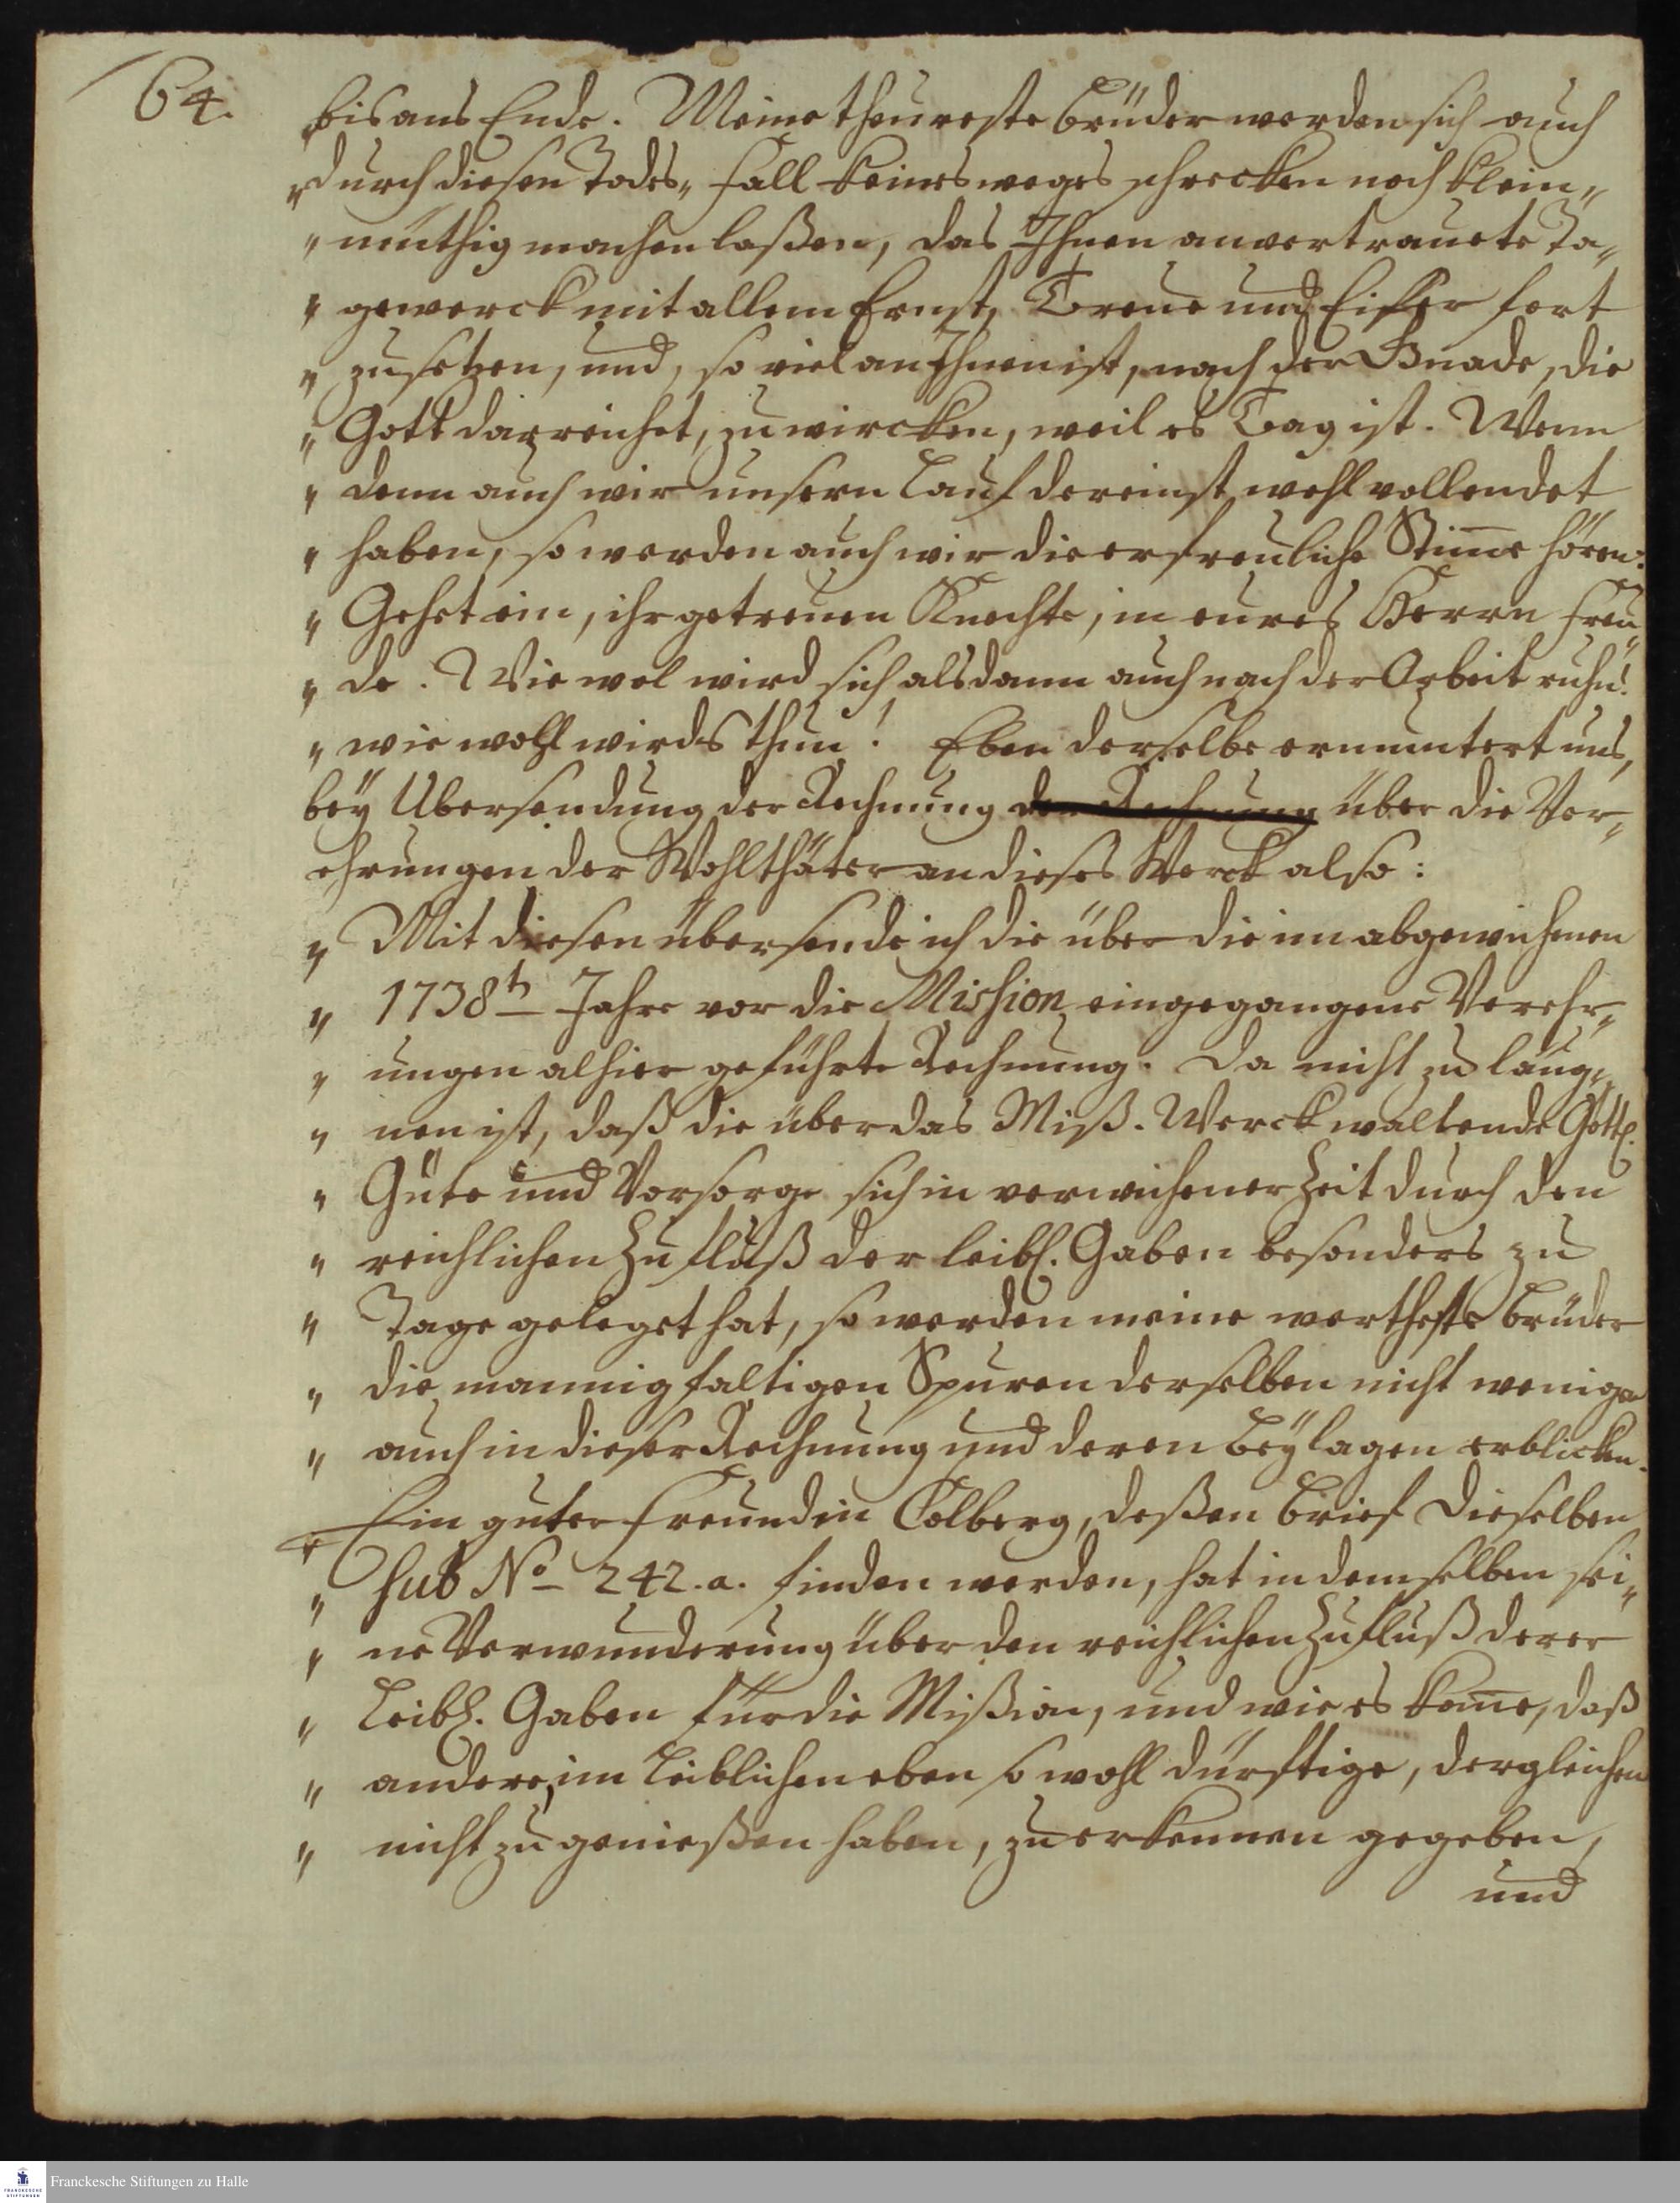 64.
„bis ans Ende. Meine theureste Brüder werden sich auch
„durch diesen Todes„ fall keinesweges schrecken noch klein„
„ müthig machen laßen, das Ihnen anvertrauete Ta„
„ gewerck mit allem Ernst, Treue und Eiffer fort
„ zusetzen, und, so viel an Ihnen ist, nach der Gnade, die
„ Gott darreichet, zu wircken, weil es Tag ist. Wenn
„ denn auch wir unsern Lauf dereinst wohl vollendet
„ haben, so werden auch wir die erfreuliche Stim̅e hören:
„ Gehet ein, ihr getreuen Knechte, in eures Herrn Freu„
„ de. Wie wol wird sich alsdann auch nach der Arbeit ruhn!
„ wie wohl wirds thun! Eben derselbe ermuntert uns,
bey Ubersendung der Rechnung der Rechnung über die Ver„
ehrungen der Wohlthäter an dieses Werck also:
„ Mit diesen übersende ich die über die im abgewichenen
„ 1738tn Jahre vor die Mission eingegangene Verehr„
„ ungen alhier geführte Rechnung. Da nicht zu läug„
„ nen ist, daß die über das Miß. Werck waltende Göttl.
„ Güte und Vorsorge sich in verwichener Zeit durch den
„ reichlichen Zufluß der leibl. Gaben besonders zu
„ Tage geleget hat, so werden meine wertheste Brüder
„ die mannigfaltigen Spuren derselben nicht weniger
„ auch in dieser Rechnung und deren Beylagen erblicken.
„ Ein guter Freund in Colberg, deßen Brief dieselben
„ sub No 242.a. finden werden, hat in demselben sei„
„ ne Verwunderung über den reichlichen Zufluß derer
„ Leibl. Gaben für die Mißion, und wie es kom̅e, daß
„ andere, im Leiblichen eben so wohl dürftige, dergleichen
„ nicht zu genießen haben, zu erkennen gegeben,
und
Franckesche Stiftungen zu Halle
FRANCKESCHE
STIFTUNGEN